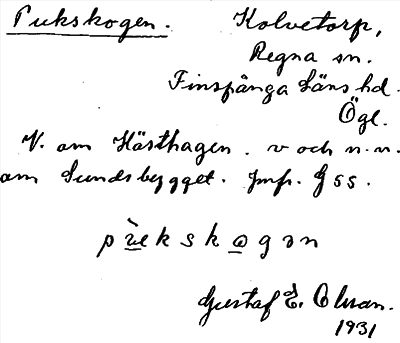 Pukskogen. Kolvetorp,
Regna sn.
Finspånga läns hd.
Ögl.
V. om Hästhagen. v och n.n.
om Sundsbygget. Jmf. G 55.
pùkskogən
Gustaf E. Olsson.
1931